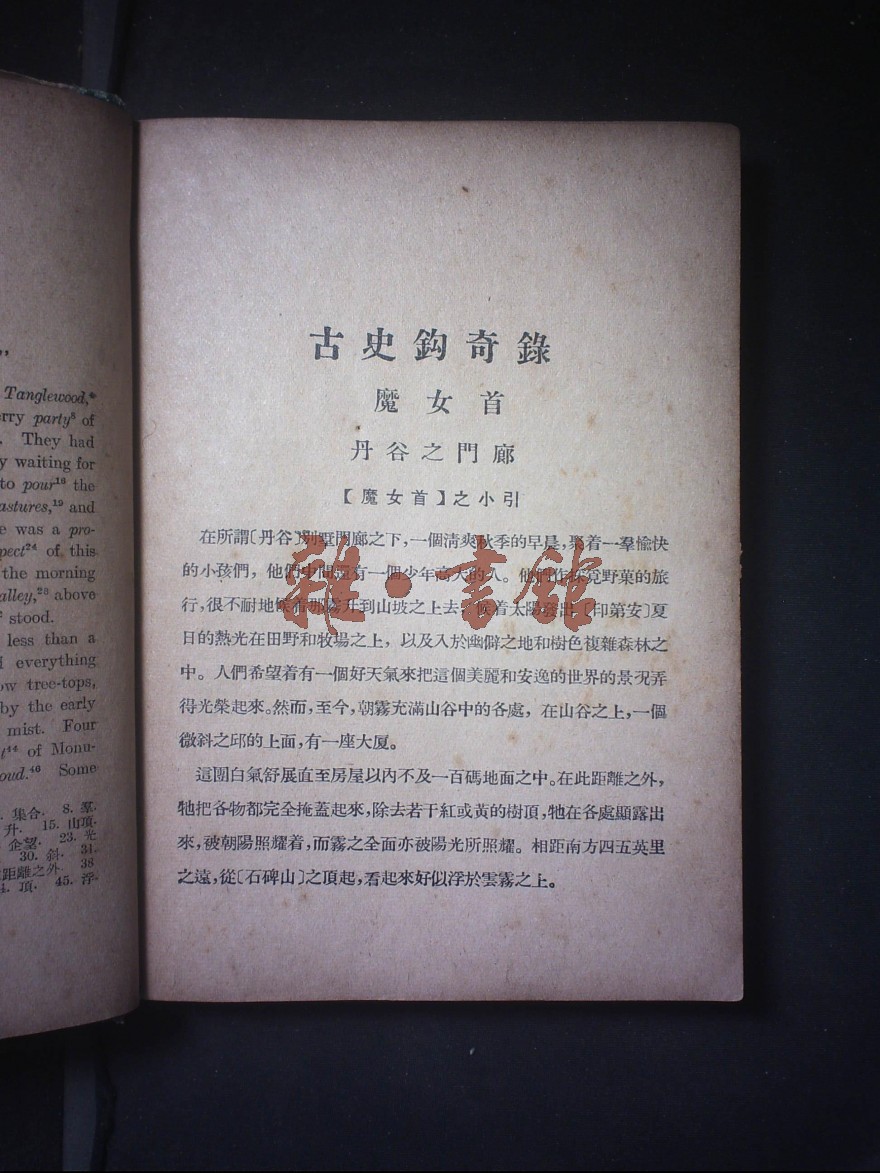 ”
Tanglewood,⁴
erry party⁸ of
. They had
y waiting for
to pour¹⁶ the
astures,¹⁹ and
e was a pro-
pect²⁴ of this
the morning
alley,²⁸ above
stood.
less than a
everything
ow tree-tops,
by the early
mist. Four
t⁴⁴ of Monu-
oud.⁴⁶ Some
集合. 8. 羣.
升. 15. 山頂.
企望. 23. 光
30. 斜. 31.
距離之外. 38
頂. 45. 浮.
古史鈎奇錄
魔女首
丹谷之門廊
【魔女首】之小引
在所謂〔丹谷〕別墅門廊之下，一個清爽秋季的早晨，聚着一羣愉快
的小孩們，他們中間還有一個少年高大的人。他們作採覓野菓的旅
行，很不耐地候着那霧升到山坡之上去，候着太陽發出〔印第安〕夏
日的熱光在田野和牧場之上，以及入於幽僻之地和樹色複雜森林之
中。人們希望着有一個好天氣來把這個美麗和安逸的世界的景況弄
得光榮起來。然而，至今，朝霧充滿山谷中的各處，在山谷之上，一個
微斜之邱的上面，有一座大厦。
這團白氣舒展直至房屋以內不及一百碼地面之中。在此距離之外，
牠把各物都完全掩蓋起來，除去若干紅或黃的樹頂，牠在各處顯露出
來，被朝陽照耀着，而霧之全面亦被陽光所照耀。相距南方四五英里
之遠，從〔石碑山〕之頂起，看起來好似浮於雲霧之上。
雜·書館